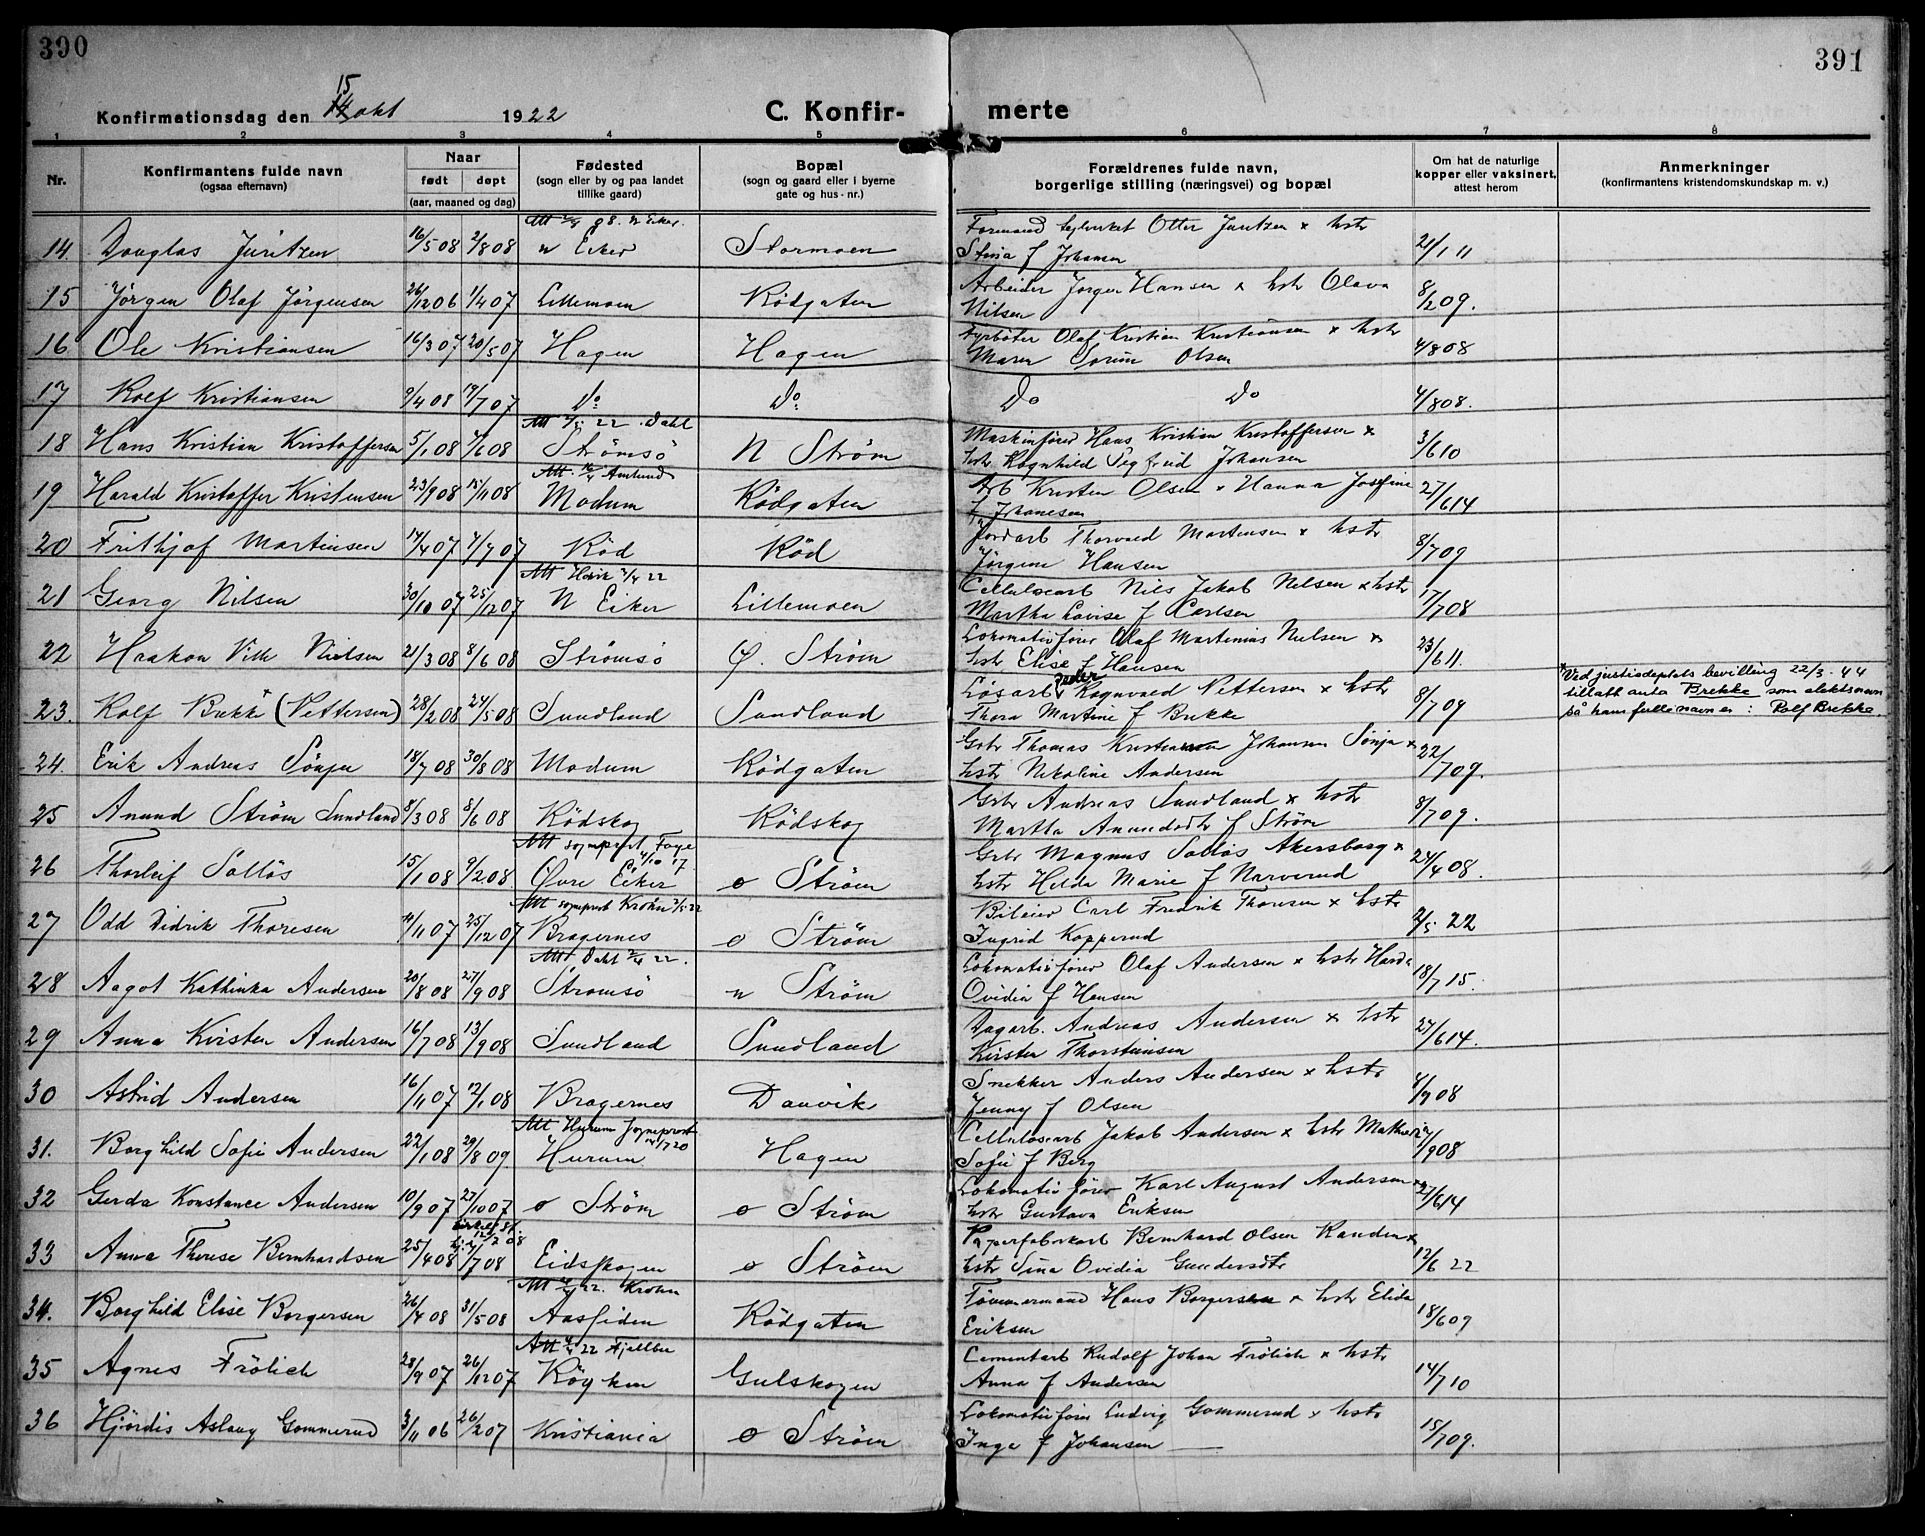 390
391
15
14 okt
Konfirmationsdag den 1922
C. Konfir- merte
1 2 3 4 5 6 7 8
Nr.
Konfirmantens fulde navn
(ogsaa efternavn)
Naar
født døpt
(aar, maaned og dag)
Fødested
(sogn eller by og paa landet
tillike gaard)
Bopæl
(sogn og gaard eller i byerne
gate og hus-nr.)
Forældrenes fulde navn,
borgerlige stilling (næringsvei) og bopæl
Om hat de naturlige
kopper eller vaksinert,
attest herom
Anmerkninger
(konfirmantens kristendomskundskap m. v.)
14. Douglas Juritzen 16/5 08 2/8 08 N Eiker Stormoen Stina f Johansen 21/1 11
15 Jørgen Olaf Jørgensen 26/12 06 1/4 07 Lillemoen Rödgaten Arbeider Jørgen Hansen x hstr Olava
Nilsen 8/2 09.
16 Ole Kristiansen 16/3 07 20/5 07 Hagen Hagen Fyrbøter Olaf Kristian Kristiansen x hstr
Maren Sorine Olsen 4/8 08
17 Rolf Kristiansen 9/4 08 19/7 07 Do Do Do Do 4/8 08.
Att 22. Dahl
18 Hans Kristian Kristoffersen 5/1 08 7/6 08 Strömsö N Ström Maskinfører Hans Kristian Kristoffersen x
hstr Ragnhild Sigfrid Johansen 3/6 10
19 Harald Kristoffer Kristensen 23/9 08 15/11 08 Modum Rödgaten Arb Kristen Olsen x Hanna Josefine
f Johanesen 27/6 14
20 Frithjof Martinsen 14/4 07 7/7 07 Röd Röd Jordarb Thorvald Martinsen x hstr
Jörgine Hansen 8/7 09
21 Georg Nilsen 30/10 07 25/12 07 N Eiker Lillemoen Cellulosearb Nils Jakob Nilsen x hstr
Martha Lovise f Carlsen 17/7 08
22 Haakon Vilh Nielsen 21/3 08 8/6 08 Strömsö Ø. Ström Lokomotivfører Olaf Martinius Nielsen x
hstr Elise f Hansen 23/6 11.
23. Rolf Brekke (Pettersen) 28/2 08 24/5 08 Sundland Sundland Løsarb Peder Ragnvald Pettersen x hstr
Thora Martine f Brekke 8/7 09
Ved justisdeptets bevilling 22/3-44
tillatt anta Brekke som slektsnavn
så hans fulle navn er: Rolf Brekke.
24. Erik Andreas Sönju 18/7 08 30/8 08 Modum Rödgaten Gbr Thomas Kristiansen Johansen Sönju x
hstr Nikoline Andersen 22/7 09.
25 Anund Ström Sundland 8/3 08 8/6 08 Rödskog Rödskog Gbr Andreas Sundland x hstr
Martha Anundsdtr f Ström 8/7 09.
26 Thorleif Solläs 15/1 08 9/2 08 Øvre Eiker ø Ström Gbr Magnus Solläs Akersborg x
hstr Hilda Marie f Narverud 24/4 08.
27 Odd Didrik Thoresen 11/11 07 25/12 07 Bragernes ø Ström Bileier Carl Fredrik Thoresen x hstr
Ingrid Kopperud 2/5 22
28 Aagot Kathinka Andersen 20/8 08 27/9 08 Strömsö n Ström Lokomotivfører Olaf Andersen x hstr Harda
Ovidia f Hansen 18/7 15.
29 Anna Kirsten Andersen 16/7 08 13/9 08 Sundland Sundland Dagarb. Andreas Andersen x hstr
Kirsten Thorsteinsen 27/6 14.
30 Astrid Andersen 16/11 07 12/1 08 Bragernes Danvik Snekker Anders Andersen x hstr
Jenny f Olsen 4/9 08
31. Borghild Sofie Andersen 22/1 08 29/8 09. Hurum Hagen Cellulosearb Jakob Andersen x hstr
Sofie f Berg
32 Gerda Konstance Andersen 10/9 07 27/10 07 ø Ström ø Ström Lokomotivfører Karl August Andersen x
hstr Gustava Eriksen 27/6 14
33 Anna Therese Bernhardsen 25/4 08 7/7 08 Eidskogen ø Ström Papirfabrikarb Bernhard Olsen Randen x
hstr Sina Ovidia Gundersdtr 12/6 22
34. Borghild Elise Borgersen 26/4 08 31/5 08 Aassiden Rödgaten Tømmermand Hans Borgersen x hstr Elida
Eriksen 18/6 09
35 Agnes Frölich 28/9 07 26/12 07 Röyken Gulskogen Cementarb Rudolf Johan Frölich x hstr
Anna f Andersen 14/7 10
36 Hjördis Aslaug Gommerud 3/11 06 26/2 07 Kristiania ø Ström Lokomotivfører Ludvig Gommerud x hstr
Inga f Johansen 15/7 09.